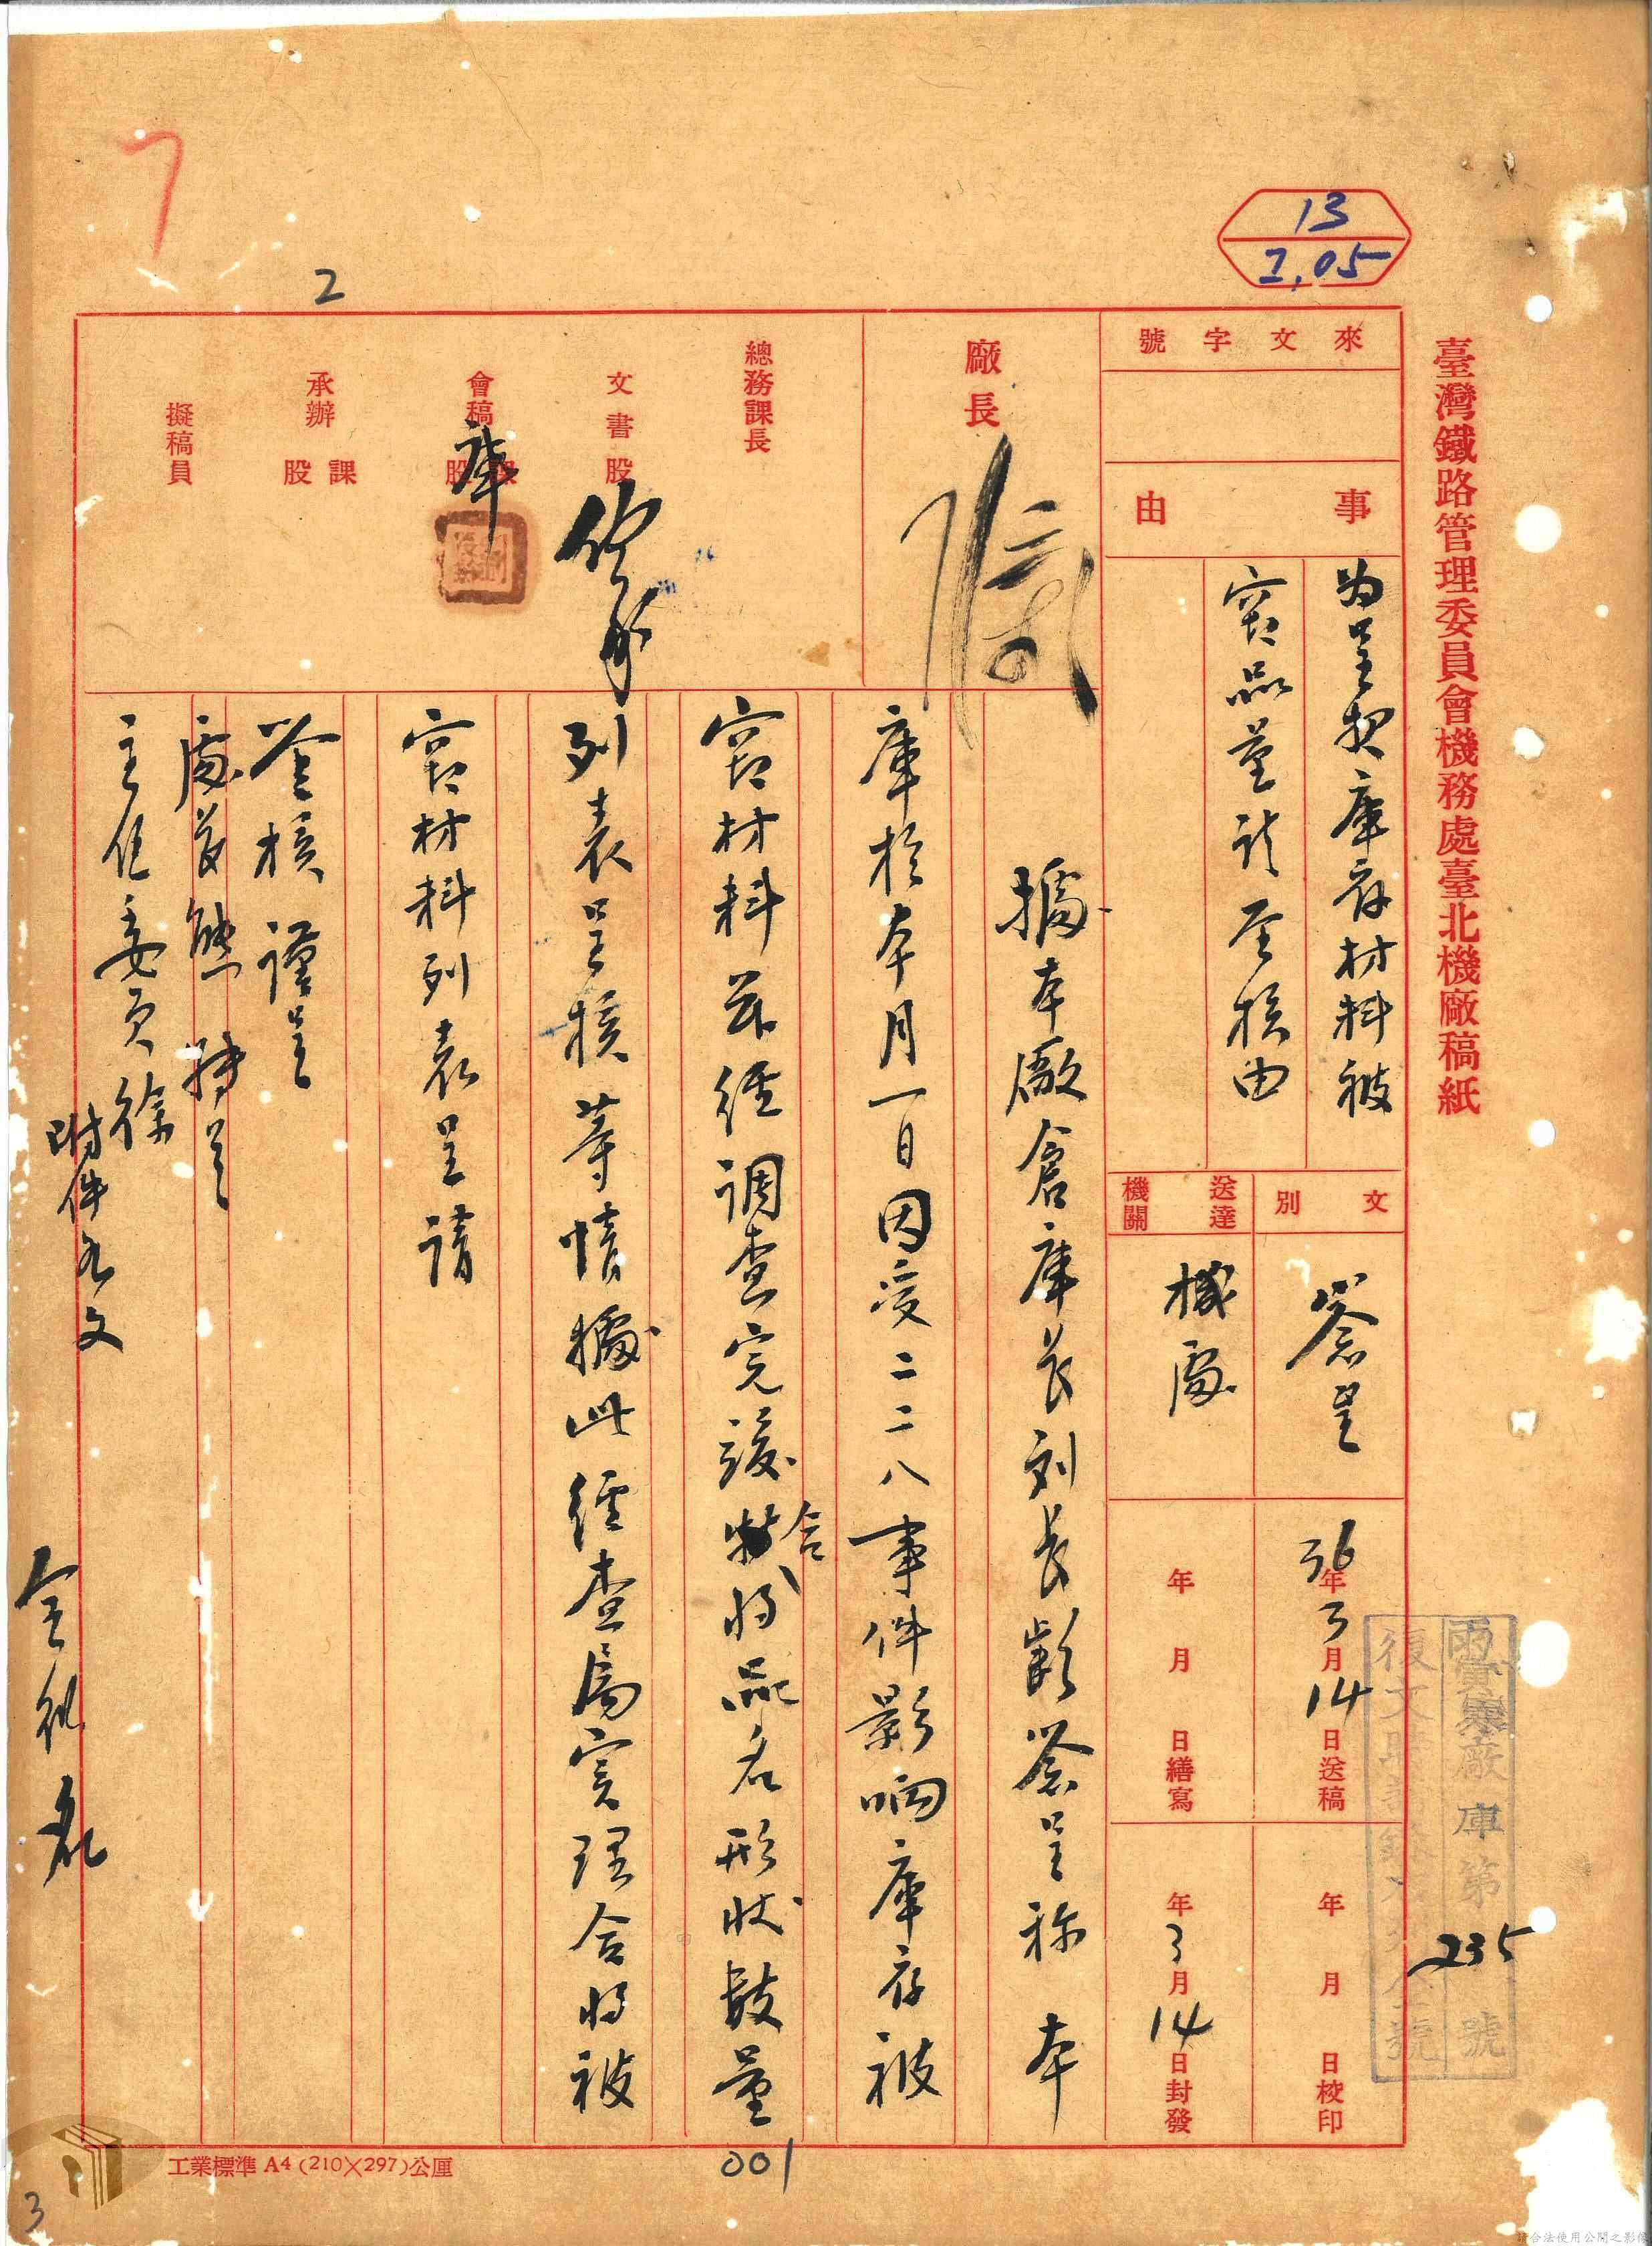 臺灣鐵路管理委員會機務處臺北機廠稿紙
13
2,05
7
2
來文字號
事由
为呈報庫存材料被
竊品量請鉴核由
文別
簽呈
送達機關
機處
36年3月14日送稿
年 月 日繕寫
年 月 日校印
年3月14日封發
廠庫第235號
廠長
總務課長
文書股
會稿 課 股
庫
承辦 課 股
擬稿員
據本廠倉庫主任刘長齡簽呈称本
庫於本月一日因受二二八事件影响庫存被
窃材料茲經調查完竣合将品名形狀数量
列表呈核等情據此經查属实理合将被
窃材料列表呈請
鉴核謹呈
處長熊 轉呈
主任委員徐
附件如文
全銜名
工業標準 A4 (210×297)公厘
001
3
請合法使用公開之影像